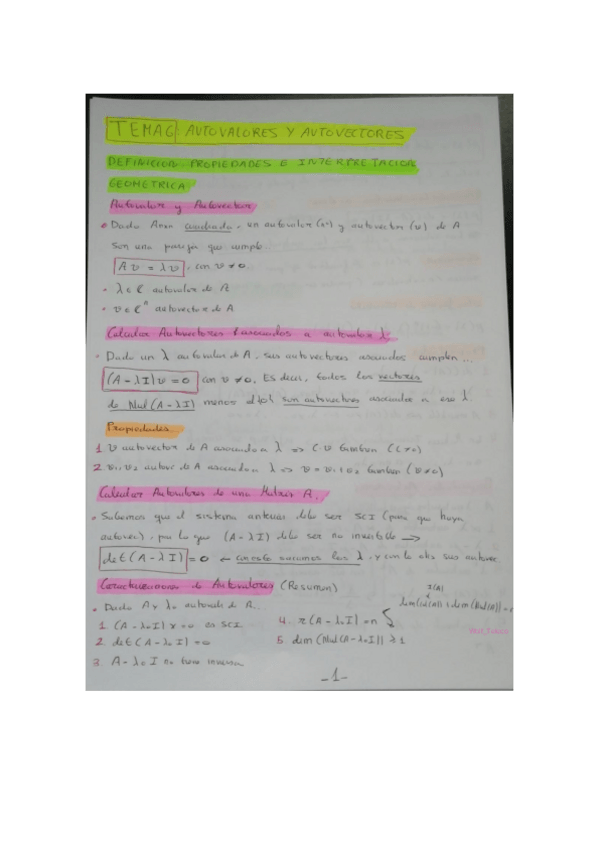 TEMA 6: AUTOVALORES Y AUTOVECTORES
DEFINICION. PROPIEDADES E INTERPRETACION
GEOMETRICA
Autovalor y Autovector
Dada Anxn cuadrada, un autovalor (λ) y autovector (v) de A
son una pareja que cumple
Av = λv, con v ≠ 0.
λ ∈ C autovalor de A
v ∈ Cⁿ autovector de A
Calcular Autovectores asociados a autovalor λ
Dado un λ autovalor de A, sus autovectores asociados cumplen...
(A - λI)v = 0 con v ≠ 0. Es decir, todos los vectores
de Nul(A - λI) menos el {0} son autovectores asociados a ese λ.
Propiedades..
1 v autovector de A asociado a λ => c·v tambien (c ≠ 0)
2 v1, v2 autovec de A asociado a λ => v = v1 + v2 tambien (v ≠ 0)
Calcular Autovalores de una Matriz A.
Sabemos que el sistema anterior debe ser SCI (para que haya
autovec), por lo que (A - λI) debe ser no invertible →
det(A - λI) = 0 ← con esto sacamos los λ, y con lo otro sus autovec
Caracterizaciones de Autovalores (Resumen)
Dada A y λ0 autovalor de A...
1. (A - λ0I)x = 0 es SCI
2. det(A - λ0I) = 0
3. A - λ0I no tiene inversa
4. r(A - λ0I) < n
r(A)
dim(Col(A)) + dim(Nul(A)) = n
5. dim(Nul(A - λ0I)) ≥ 1
-1-